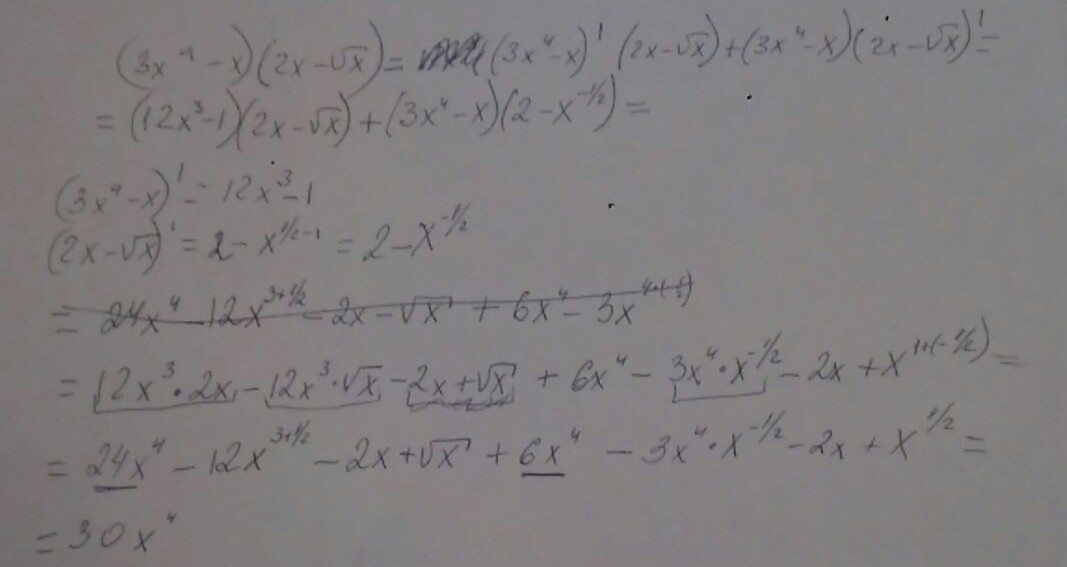 (3x⁴ - x)(2x - √x) = ((3x⁴ - x)' (2x - √x) + (3x⁴ - x)(2x - √x)' =
= (12x³ - 1)(2x - √x) + (3x⁴ - x)(2 - x^(-1/2)) =
(3x⁴ - x)' = 12x³ - 1
(2x - √x)' = 2 - x^(1/2 - 1) = 2 - x^(-1/2)
= 24x⁴ - 12x^(3+1/2) - 2x - √x + 6x⁴ - 3x
= 12x³ · 2x - 12x³ · √x - 2x + √x + 6x⁴ - 3x⁴ · x^(-1/2) - 2x + x^(1+(-1/2)) =
= 24x⁴ - 12x^(3+1/2) - 2x + √x + 6x⁴ - 3x⁴ · x^(-1/2) - 2x + x^(1/2) =
= 30x⁴